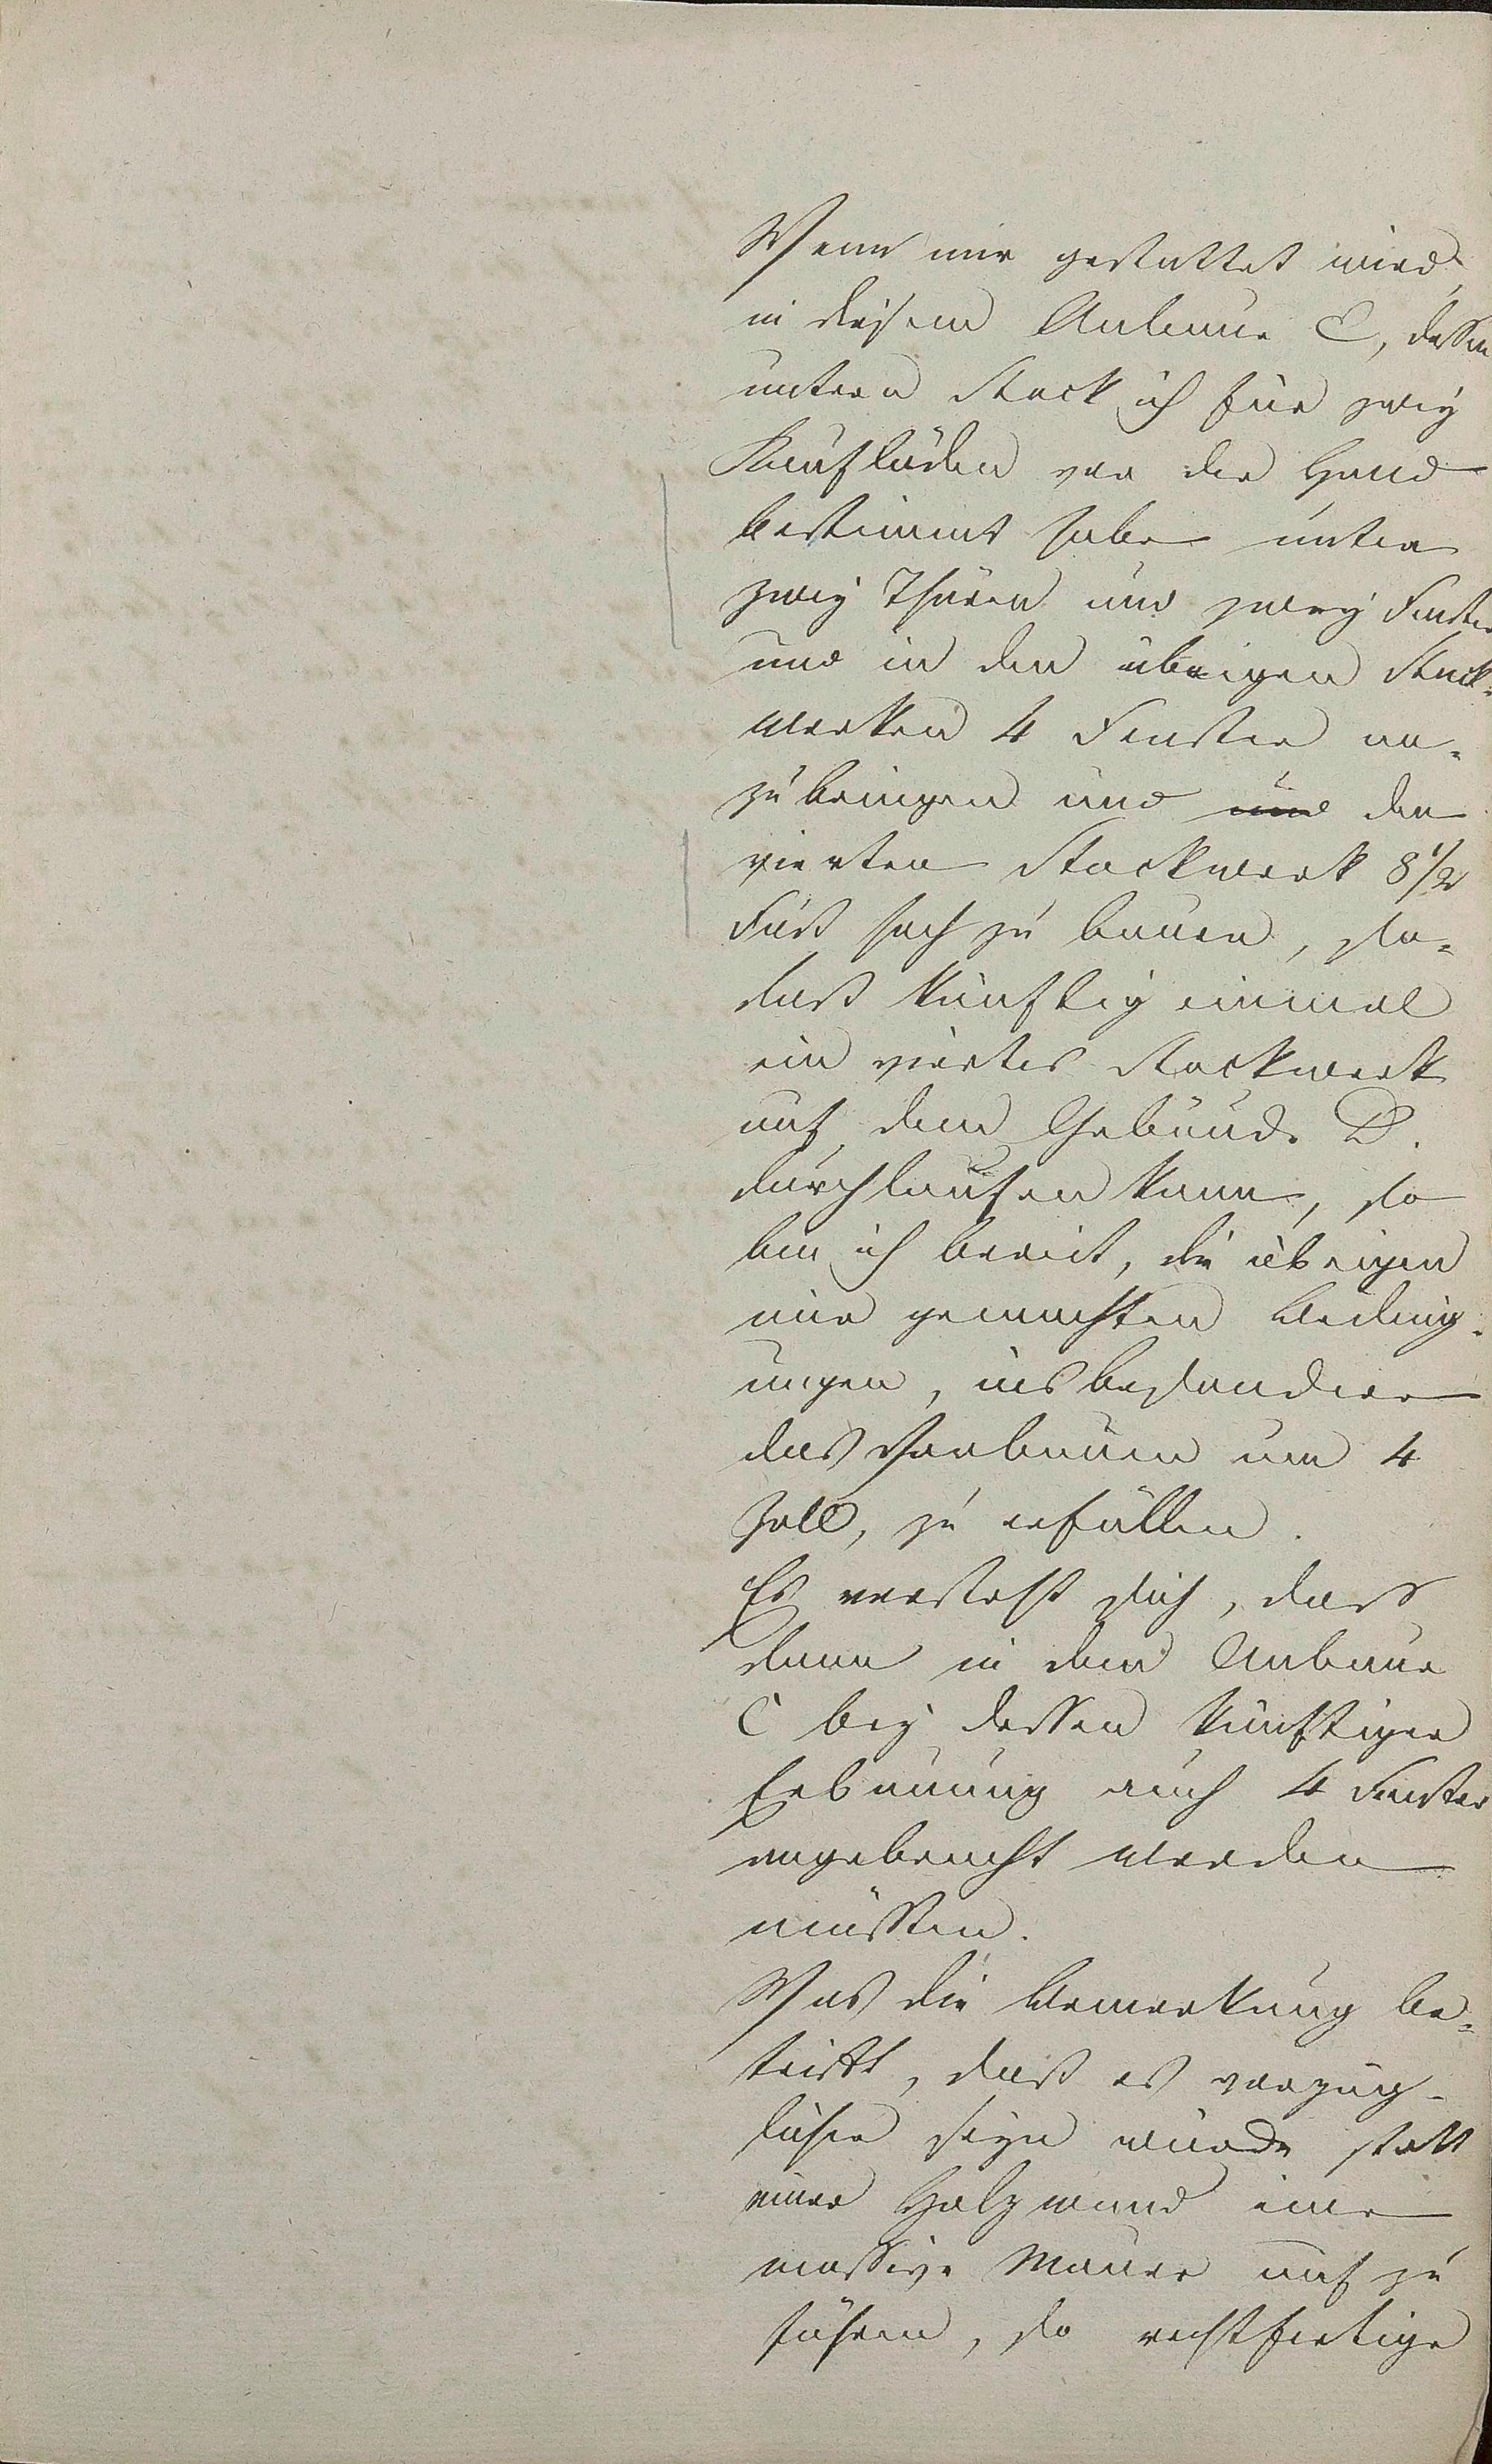 Wenn mir gestattet wird,
in diesem Anbaue C, dessen
untern Stock ich für zwey
Kaufläden vor der Hand
bestimmt habe unten
zwey Thüren und zwey Fenster
und in den übrigen Stock-
werken 4 Fenster an-
zubringen und und den
vierten Stockwerk 8 1/2
Fuß hoch zu bauen, so
daß künftig einmal
ein viertes Stockwerk
auf dem Gebäude D.
durchlaufen kann, so
bin ich bereit, die übrigen
mir gemachten Beding-
ungen, insbesondere
das Vorbauen um 4
Zoll, zu erfüllen.
Es versteht sich, dass
dann in dem Anbaue
C bey dessen künftiger
Erbauung auch 4 Fenster
angebracht werden
müssten.
Was die Bemerkung be-
trifft, daß es vorzüg-
licher seyn würde statt
einer Holzwand eine
massive Mauer auf zu
führen, so rechtfertige